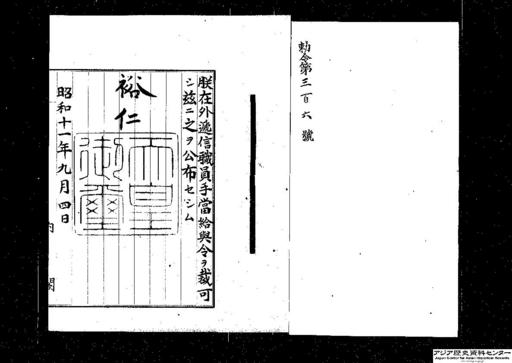 勅令第三百六號
朕在外遞信職員手當給與令ヲ裁可
シ茲ニ之ヲ公布セシム
裕仁
天皇御璽
昭和十一年九月四日
内閣
アジア歴史資料センター
Japan Center for Asian Historical Records